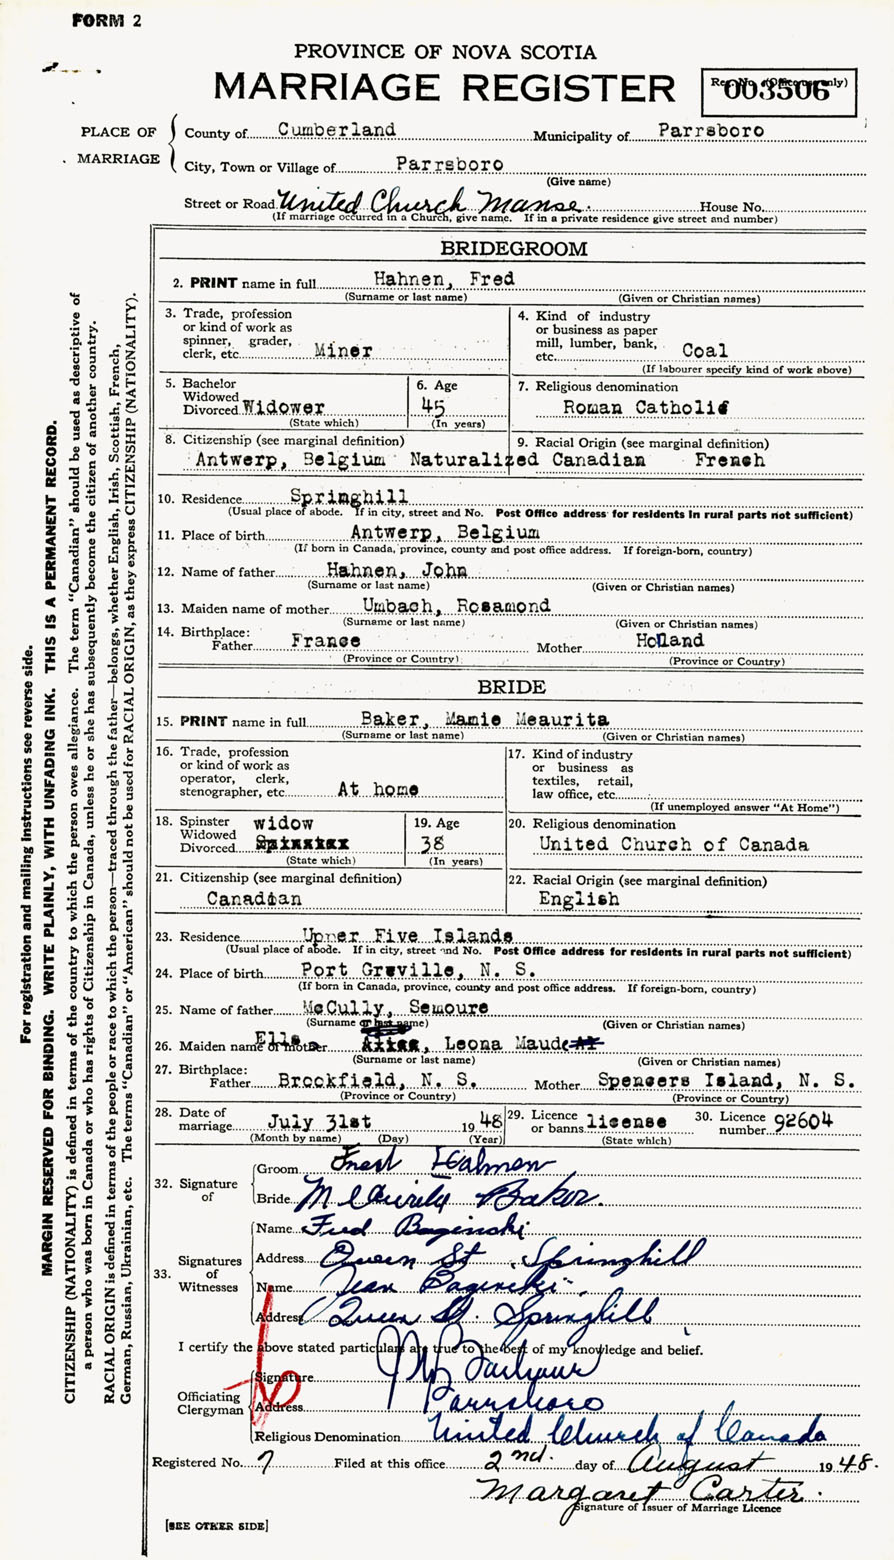 FORM 2
PROVINCE OF NOVA SCOTIA
MARRIAGE REGISTER
Reg. No. (Office use only)
003506
PLACE OF MARRIAGE
County of Cumberland Municipality of Parrsboro
City, Town or Village of Parrsboro
(Give name)
Street or Road United Church Manse. House No.
(If marriage occurred in a Church, give name. If in a private residence give street and number)
BRIDEGROOM
2. PRINT name in full Hahnen, Fred
(Surname or last name) (Given or Christian names)
3. Trade, profession or kind of work as spinner, grader, clerk, etc. Miner
4. Kind of industry or business as paper mill, lumber, bank, etc. Coal
(If labourer specify kind of work above)
5. Bachelor Widowed Divorced Widower
(State which)
6. Age 45
(In years)
7. Religious denomination
Roman Catholic
8. Citizenship (see marginal definition) 9. Racial Origin (see marginal definition)
Antwerp, Belgium Naturalized Canadian French
10. Residence Springhill
(Usual place of abode. If in city, street and No. Post Office address for residents in rural parts not sufficient)
11. Place of birth Antwerp, Belgium
(If born in Canada, province, county and post office address. If foreign-born, country)
12. Name of father Hahnen, John
(Surname or last name) (Given or Christian names)
13. Maiden name of mother Umbach, Rosamond
(Surname or last name) (Given or Christian names)
14. Birthplace:
Father France Mother Holland
(Province or Country) (Province or Country)
BRIDE
15. PRINT name in full Baker, Mamie Meaurita
(Surname or last name) (Given or Christian names)
16. Trade, profession or kind of work as operator, clerk, stenographer, etc. At home
17. Kind of industry or business as textiles, retail, law office, etc.
(If unemployed answer "At Home")
18. Spinster Widowed Divorced widow
(State which)
19. Age 38
(In years)
20. Religious denomination
United Church of Canada
21. Citizenship (see marginal definition) 22. Racial Origin (see marginal definition)
Canadian English
23. Residence Upper Five Islands
(Usual place of abode. If in city, street and No. Post Office address for residents in rural parts not sufficient)
24. Place of birth Port Greville, N. S.
(If born in Canada, province, county and post office address. If foreign-born, country)
25. Name of father McCully, Semoure
(Surname or last name) (Given or Christian names)
26. Maiden name of mother Ells, Leona Maude
(Surname or last name) (Given or Christian names)
27. Birthplace:
Father Brookfield, N. S. Mother Spencers Island, N. S.
(Province or Country) (Province or Country)
28. Date of marriage July 31st 1948 29. Licence or banns license 30. Licence number 92604
(Month by name) (Day) (Year) (State which)
32. Signature of
Groom Fred Hahnen
Bride Meaurita Baker.
33. Signatures of Witnesses
Name Fred Baginski
Address Queen St. Springhill
Name Jean Baginski
Address Queen St. Springhill
I certify the above stated particulars are true to the best of my knowledge and belief.
Officiating Clergyman
Signature
Address Parrsboro
Religious Denomination United Church of Canada
Registered No. 7 Filed at this office 2nd. day of August 1948.
Margaret Carter.
Signature of Issuer of Marriage Licence
[SEE OTHER SIDE]
For registration and mailing instructions see reverse side.
MARGIN RESERVED FOR BINDING. WRITE PLAINLY, WITH UNFADING INK. THIS IS A PERMANENT RECORD.
CITIZENSHIP (NATIONALITY) is defined in terms of the country to which the person owes allegiance. The term "Canadian" should be used as descriptive of
a person who was born in Canada or who has rights of Citizenship in Canada, unless he or she has subsequently become the citizen of another country.
RACIAL ORIGIN is defined in terms of the people or race to which the person—traced through the father—belongs, whether English, Irish, Scottish, French,
German, Russian, Ukrainian, etc. The terms "Canadian" or "American" should not be used for RACIAL ORIGIN, as they express CITIZENSHIP (NATIONALITY).